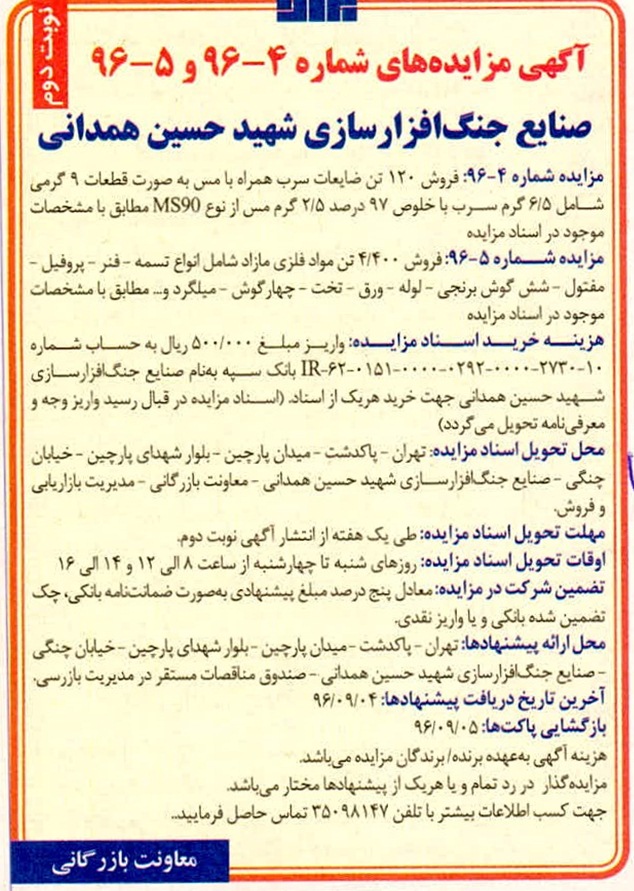 نوبت دوم
آگهی مزایده‌های شماره ۴-۹۶ و ۵-۹۶
صنایع جنگ‌افزارسازی شهید حسین همدانی
مزایده شماره ۴-۹۶: فروش ۱۲۰ تن ضایعات سرب همراه با مس به صورت قطعات ۹ گرمی
شامل ۶/۵ گرم سرب با خلوص ۹۷ درصد ۲/۵ گرم مس از نوع MS90 مطابق با مشخصات
موجود در اسناد مزایده
مزایده شماره ۵-۹۶: فروش ۴/۴۰۰ تن مواد فلزی مازاد شامل انواع تسمه - فنر - پروفیل -
مفتول - شش گوش برنجی - لوله - ورق - تخت - چهارگوش - میلگرد و... مطابق با مشخصات
موجود در اسناد مزایده
هزینه خرید اسناد مزایده: واریز مبلغ ۵۰۰/۰۰۰ ریال به حساب شماره
IR-۶۲-۰۱۵۱-۰۰۰۰-۰۲۹۲-۰۰۰۰-۲۷۳۰-۱۰ بانک سپه به‌نام صنایع جنگ‌افزارسازی
شهید حسین همدانی جهت خرید هریک از اسناد. (اسناد مزایده در قبال رسید واریز وجه و
معرفی‌نامه تحویل می‌گردد)
محل تحویل اسناد مزایده: تهران - پاکدشت - میدان پارچین - بلوار شهدای پارچین - خیابان
چنگی - صنایع جنگ‌افزارسازی شهید حسین همدانی - معاونت بازرگانی - مدیریت بازاریابی
و فروش.
مهلت تحویل اسناد مزایده: طی یک هفته از انتشار آگهی نوبت دوم.
اوقات تحویل اسناد مزایده: روزهای شنبه تا چهارشنبه از ساعت ۸ الی ۱۲ و ۱۴ الی ۱۶
تضمین شرکت در مزایده: معادل پنج درصد مبلغ پیشنهادی به‌صورت ضمانت‌نامه بانکی، چک
تضمین شده بانکی و یا واریز نقدی.
محل ارائه پیشنهادها: تهران - پاکدشت - میدان پارچین - بلوار شهدای پارچین - خیابان چنگی
- صنایع جنگ‌افزارسازی شهید حسین همدانی - صندوق مناقصات مستقر در مدیریت بازرسی.
آخرین تاریخ دریافت پیشنهادها: ۹۶/۰۹/۰۴
بازگشایی پاکت‌ها: ۹۶/۰۹/۰۵
هزینه آگهی به‌عهده برنده/ برندگان مزایده می‌باشد.
مزایده‌گذار در رد تمام و یا هریک از پیشنهادها مختار می‌باشد.
جهت کسب اطلاعات بیشتر با تلفن ۳۵۰۹۸۱۴۷ تماس حاصل فرمایید..
معاونت بازرگانی